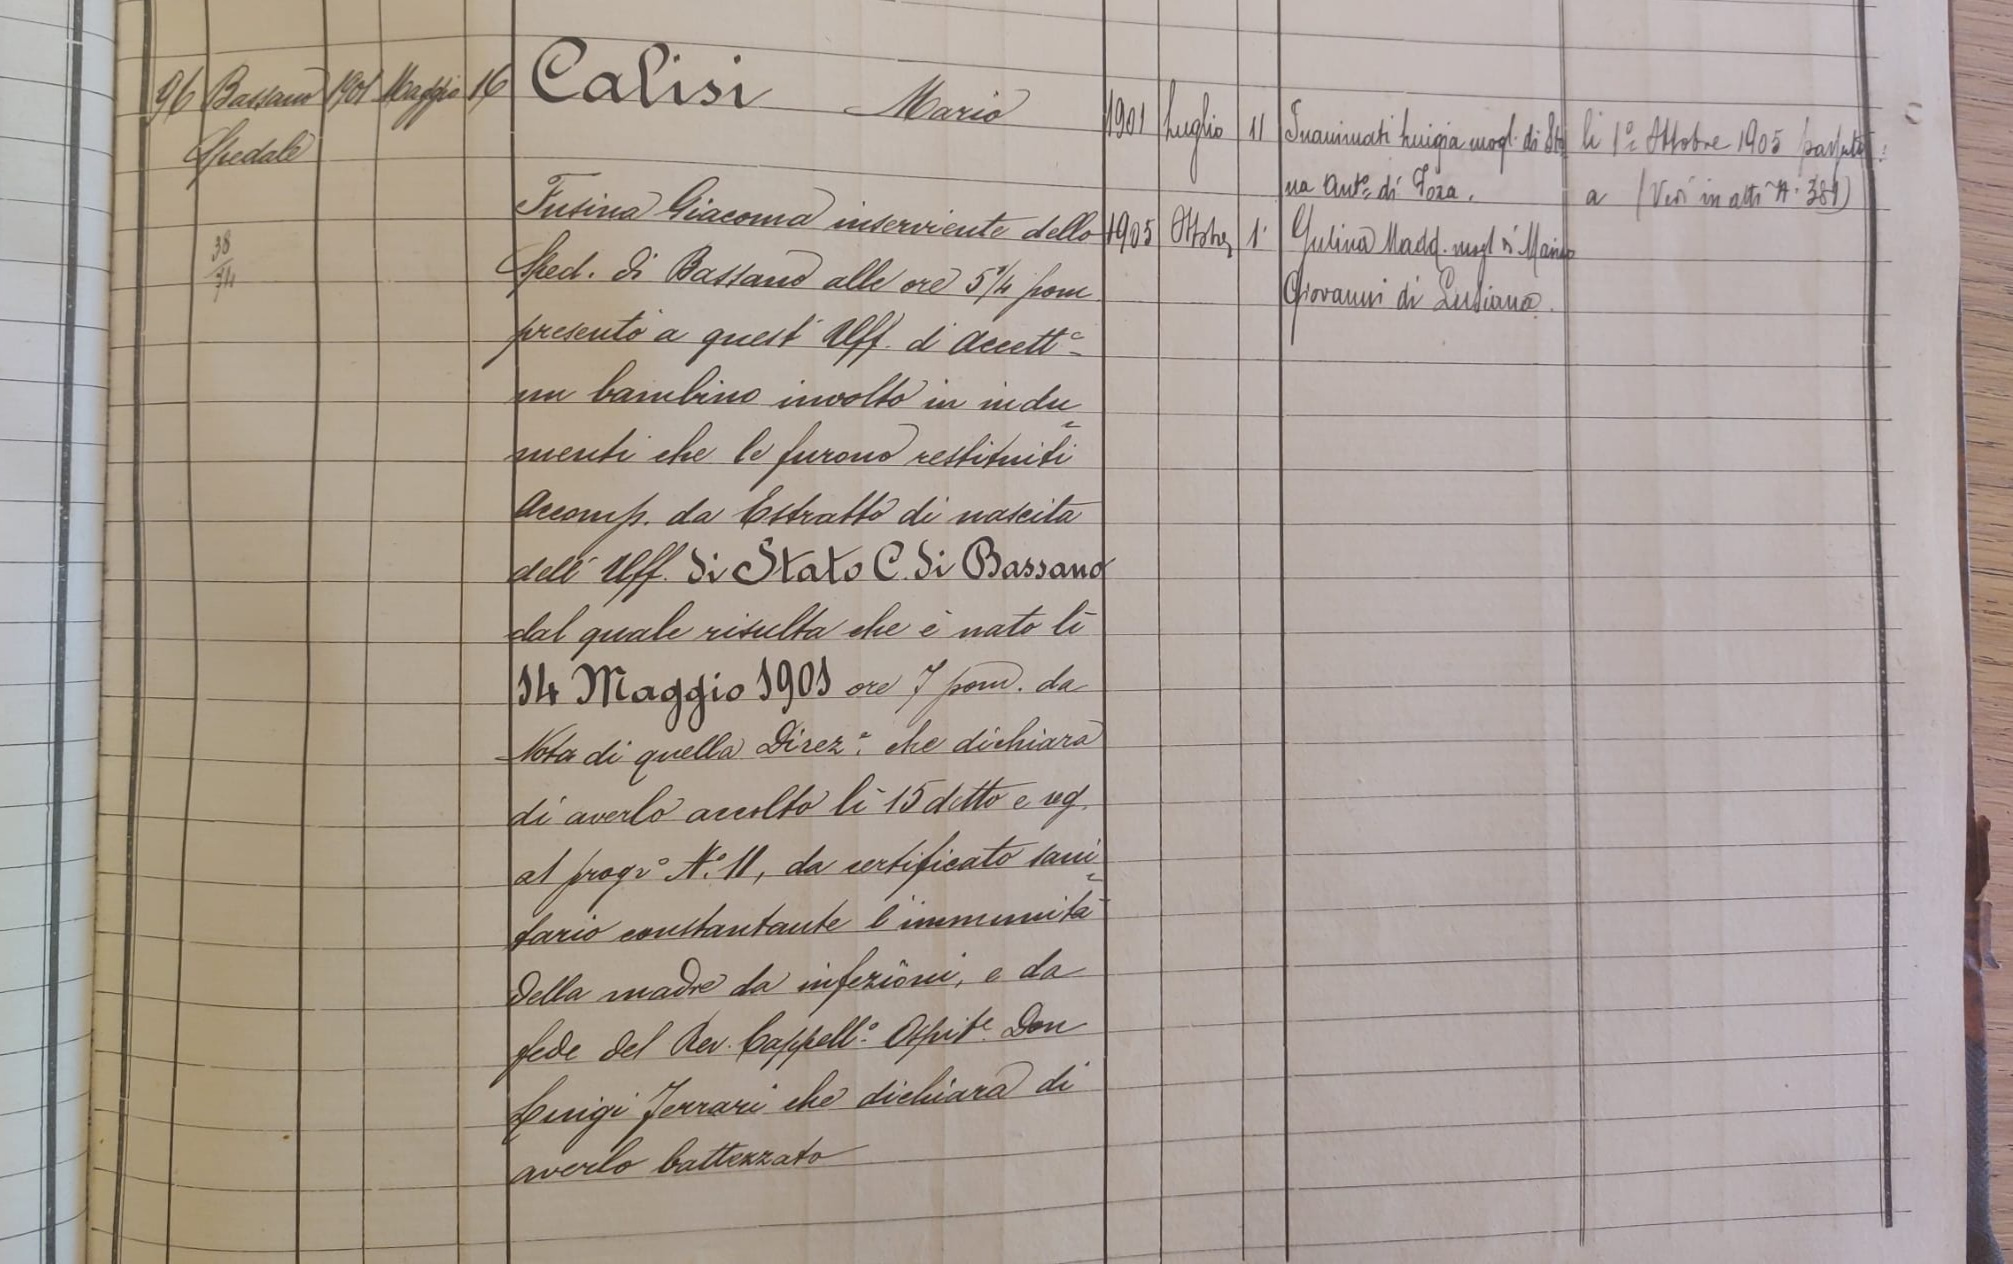 96 Bassano 1901 Maggio 16 Calisi Mario
Spedale
38
74
Fusina Giacoma inserviente dello
Sped. di Bassano alle ore 5 1/4 pom
presentò a quest' Uff. d' Accett.e
un bambino involto in indu
menti che le furono restituiti
Accomp. da Estratto di nascita
dell' Uff. di Stato C. di Bassano
dal quale risulta che è nato li
14 Maggio 1901 ore 7 pom. da
Nota di quella Direz.e che dichiara
di averlo accolto li 15 detto e reg.
al progr.o N.o 11, da certificato sani
tario constantante l'immunità
della madre da infezioni, e da
fede del Rev. Cappell.o Ospit.e Don
Luigi Ferrari che dichiara di
averlo battezzato
1901 Luglio 11 Luigia mogl. di
na Ant.o di Foza.
1905 Ottobre 1° Madd. mogl di
Giovanni di Lusiana.
li 1° Ottobre 1905 passato
a (Vedi in atti N. 381)